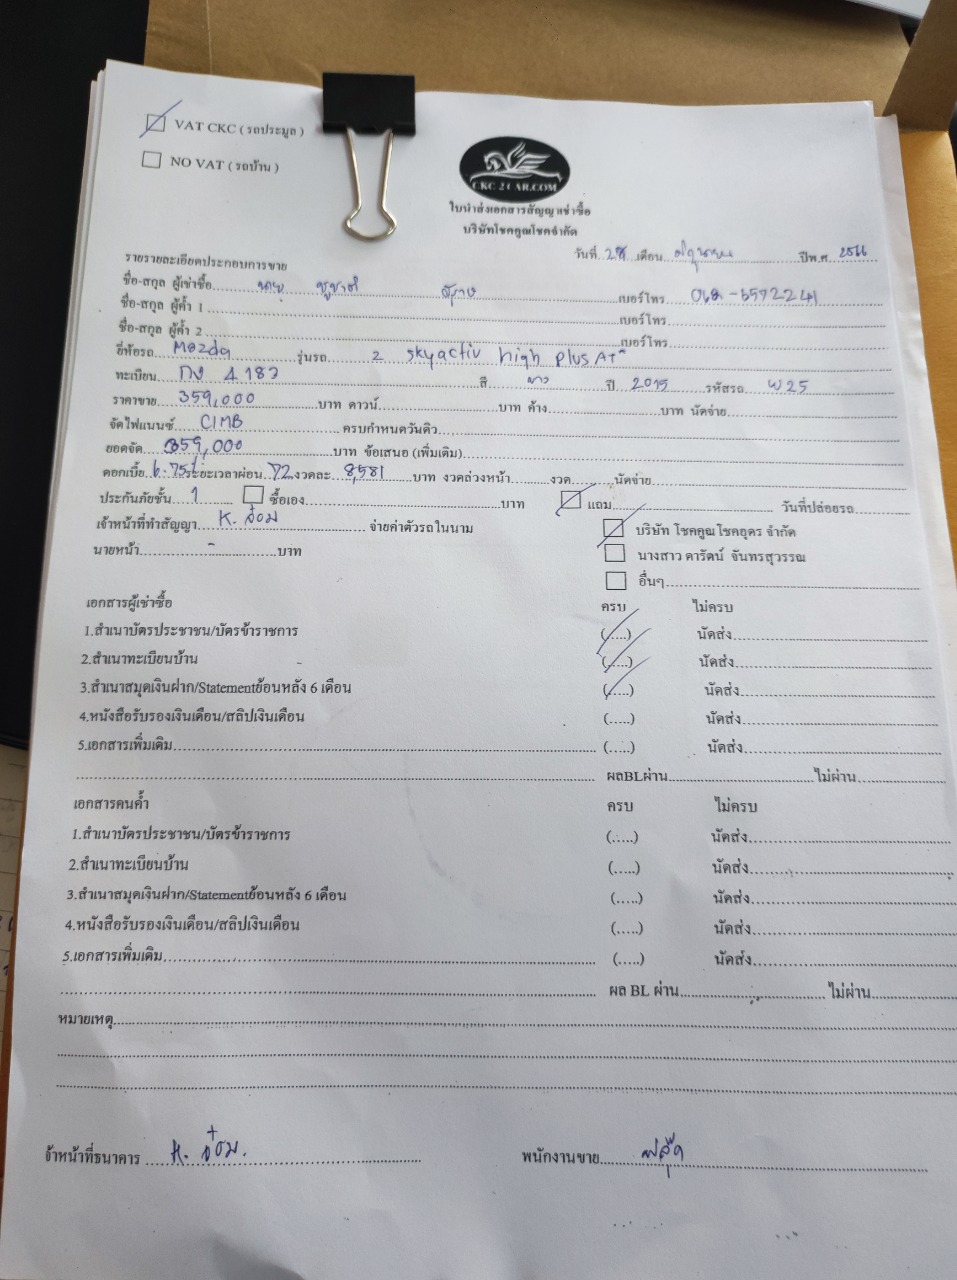 VAT CKC ( รถประมูล )
NO VAT ( รถบ้าน )
CKC 2 CAR.COM
ใบนำส่งเอกสารสัญญาเช่าซื้อ
บริษัทโชคคูณโชคจำกัด
วันที่ เดือน ปีพ.ศ. 2566
รายรายละเอียดประกอบการขาย
ชื่อ-สกุล ผู้เช่าซื้อ นาย ชูชาติ เบอร์โทร
ชื่อ-สกุล ผู้ค้ำ 1 เบอร์โทร
ชื่อ-สกุล ผู้ค้ำ 2 เบอร์โทร
ยี่ห้อรถ Mazda รุ่นรถ 2 skyactiv high plus AT
ทะเบียน กง 4183 สี ขาว ปี 2015 รหัสรถ W25
ราคาขาย 359,000 บาท ดาวน์ บาท ค้าง บาท นัดจ่าย
จัดไฟแนนซ์ CIMB ครบกำหนดวันดิว
ยอดจัด 359,000 บาท ข้อเสนอ (เพิ่มเติม)
ดอกเบี้ย 6.75% ระยะเวลาผ่อน 72 งวดละ 8,581 บาท งวดล่วงหน้า งวด นัดจ่าย
ประกันภัยชั้น 1 ซื้อเอง บาท แถม วันที่ปล่อยรถ
เจ้าหน้าที่ทำสัญญา K. อ๋อม จ่ายค่าตัวรถในนาม บริษัท โชคคูณโชคอุดร จำกัด
นายหน้า - บาท นางสาว ดารัตน์ จันทรสุวรรณ
อื่นๆ
เอกสารผู้เช่าซื้อ ครบ ไม่ครบ
1.สำเนาบัตรประชาชน/บัตรข้าราชการ (.....) นัดส่ง
2.สำเนาทะเบียนบ้าน (.....) นัดส่ง
3.สำเนาสมุดเงินฝาก/Statementย้อนหลัง 6 เดือน (.....) นัดส่ง
4.หนังสือรับรองเงินเดือน/สลิปเงินเดือน (.....) นัดส่ง
5.เอกสารเพิ่มเติม (.....) นัดส่ง
ผลBLผ่าน ไม่ผ่าน
เอกสารคนค้ำ ครบ ไม่ครบ
1.สำเนาบัตรประชาชน/บัตรข้าราชการ (.....) นัดส่ง
2.สำเนาทะเบียนบ้าน (.....) นัดส่ง
3.สำเนาสมุดเงินฝาก/Statementย้อนหลัง 6 เดือน (.....) นัดส่ง
4.หนังสือรับรองเงินเดือน/สลิปเงินเดือน (.....) นัดส่ง
5.เอกสารเพิ่มเติม (.....) นัดส่ง
ผล BL ผ่าน ไม่ผ่าน
หมายเหตุ
จ้าหน้าที่ธนาคาร K. อ๋อม. พนักงานขาย